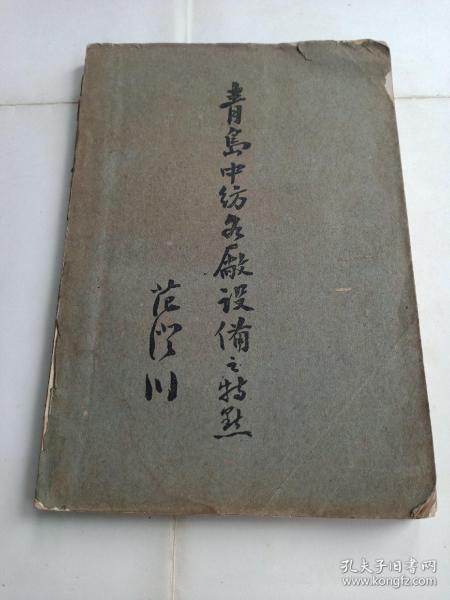 青島中紡各廠設備之特點
范澄川
孔夫子旧书网
www.kongfz.com